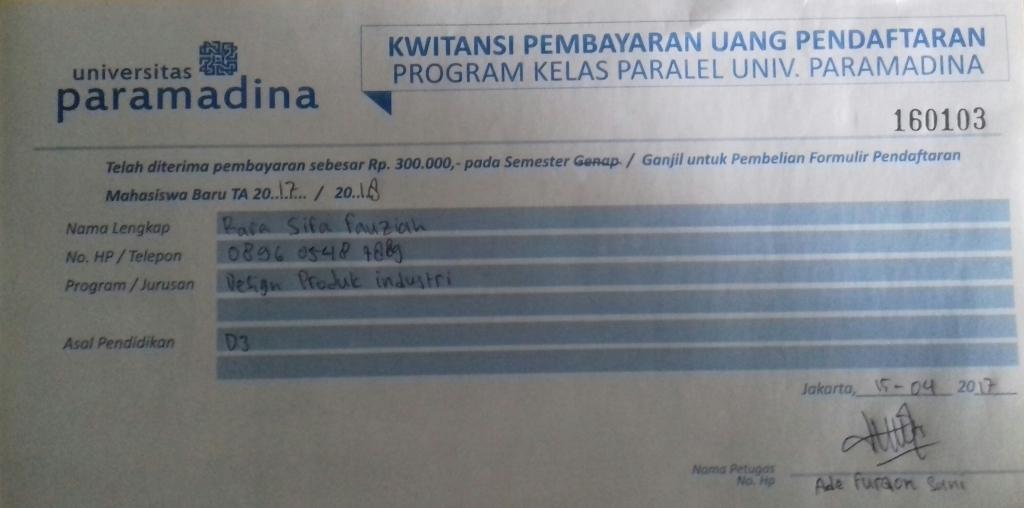 universitas
paramadina
KWITANSI PEMBAYARAN UANG PENDAFTARAN
PROGRAM KELAS PARALEL UNIV. PARAMADINA
160103
Telah diterima pembayaran sebesar Rp. 300.000,- pada Semester Genap / Ganjil untuk Pembelian Formulir Pendaftaran
Mahasiswa Baru TA 20..17... / 20..18
Nama Lengkap Rara Sifa Fauziah
No. HP / Telepon 0896 0548 7889
Program / Jurusan Design Produk industri
Asal Pendidikan D3
Jakarta, 15-04 2017
Nama Petugas
No. Hp
Ade Furqon Sani